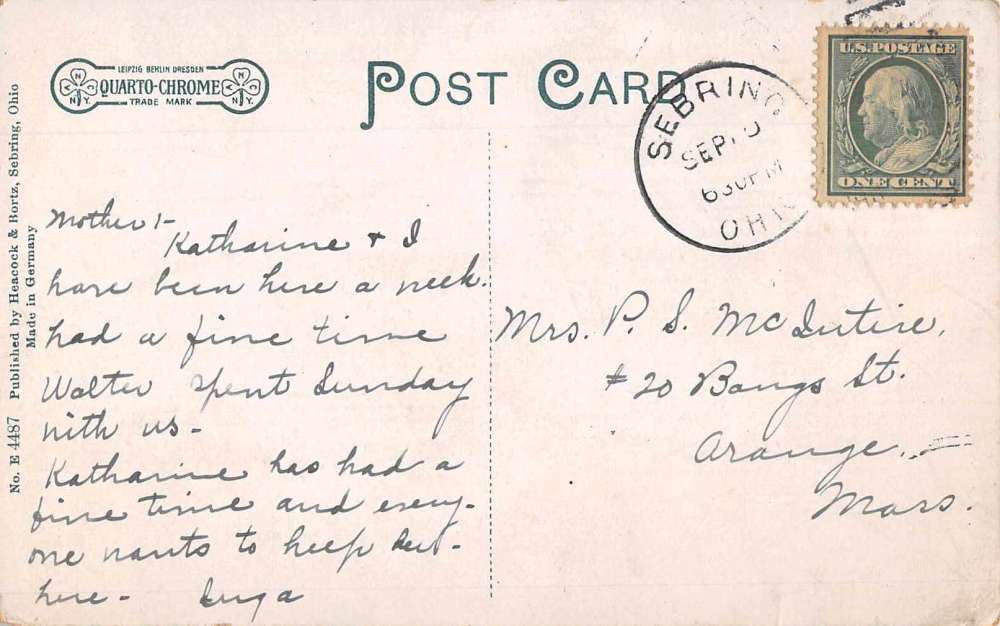 LEIPZIG BERLIN DRESDEN
QUARTO-CHROME
TRADE MARK
N.Y.
POST CARD
SEBRING
SEP 10
630PM
OHIO
U.S. POSTAGE
ONE CENT
No. E 4487 Published by Heacock & Bortz, Sebring, Ohio
Made in Germany
Mother :-
Katharine + I
have been here a week.
had a fine time
Walter spent Sunday
with us -
Katharine has had a
fine time and every-
one wants to keep her
here -
Mrs. P. S. McIntire,
# 20 Bangs St.
Orange,
Mass.